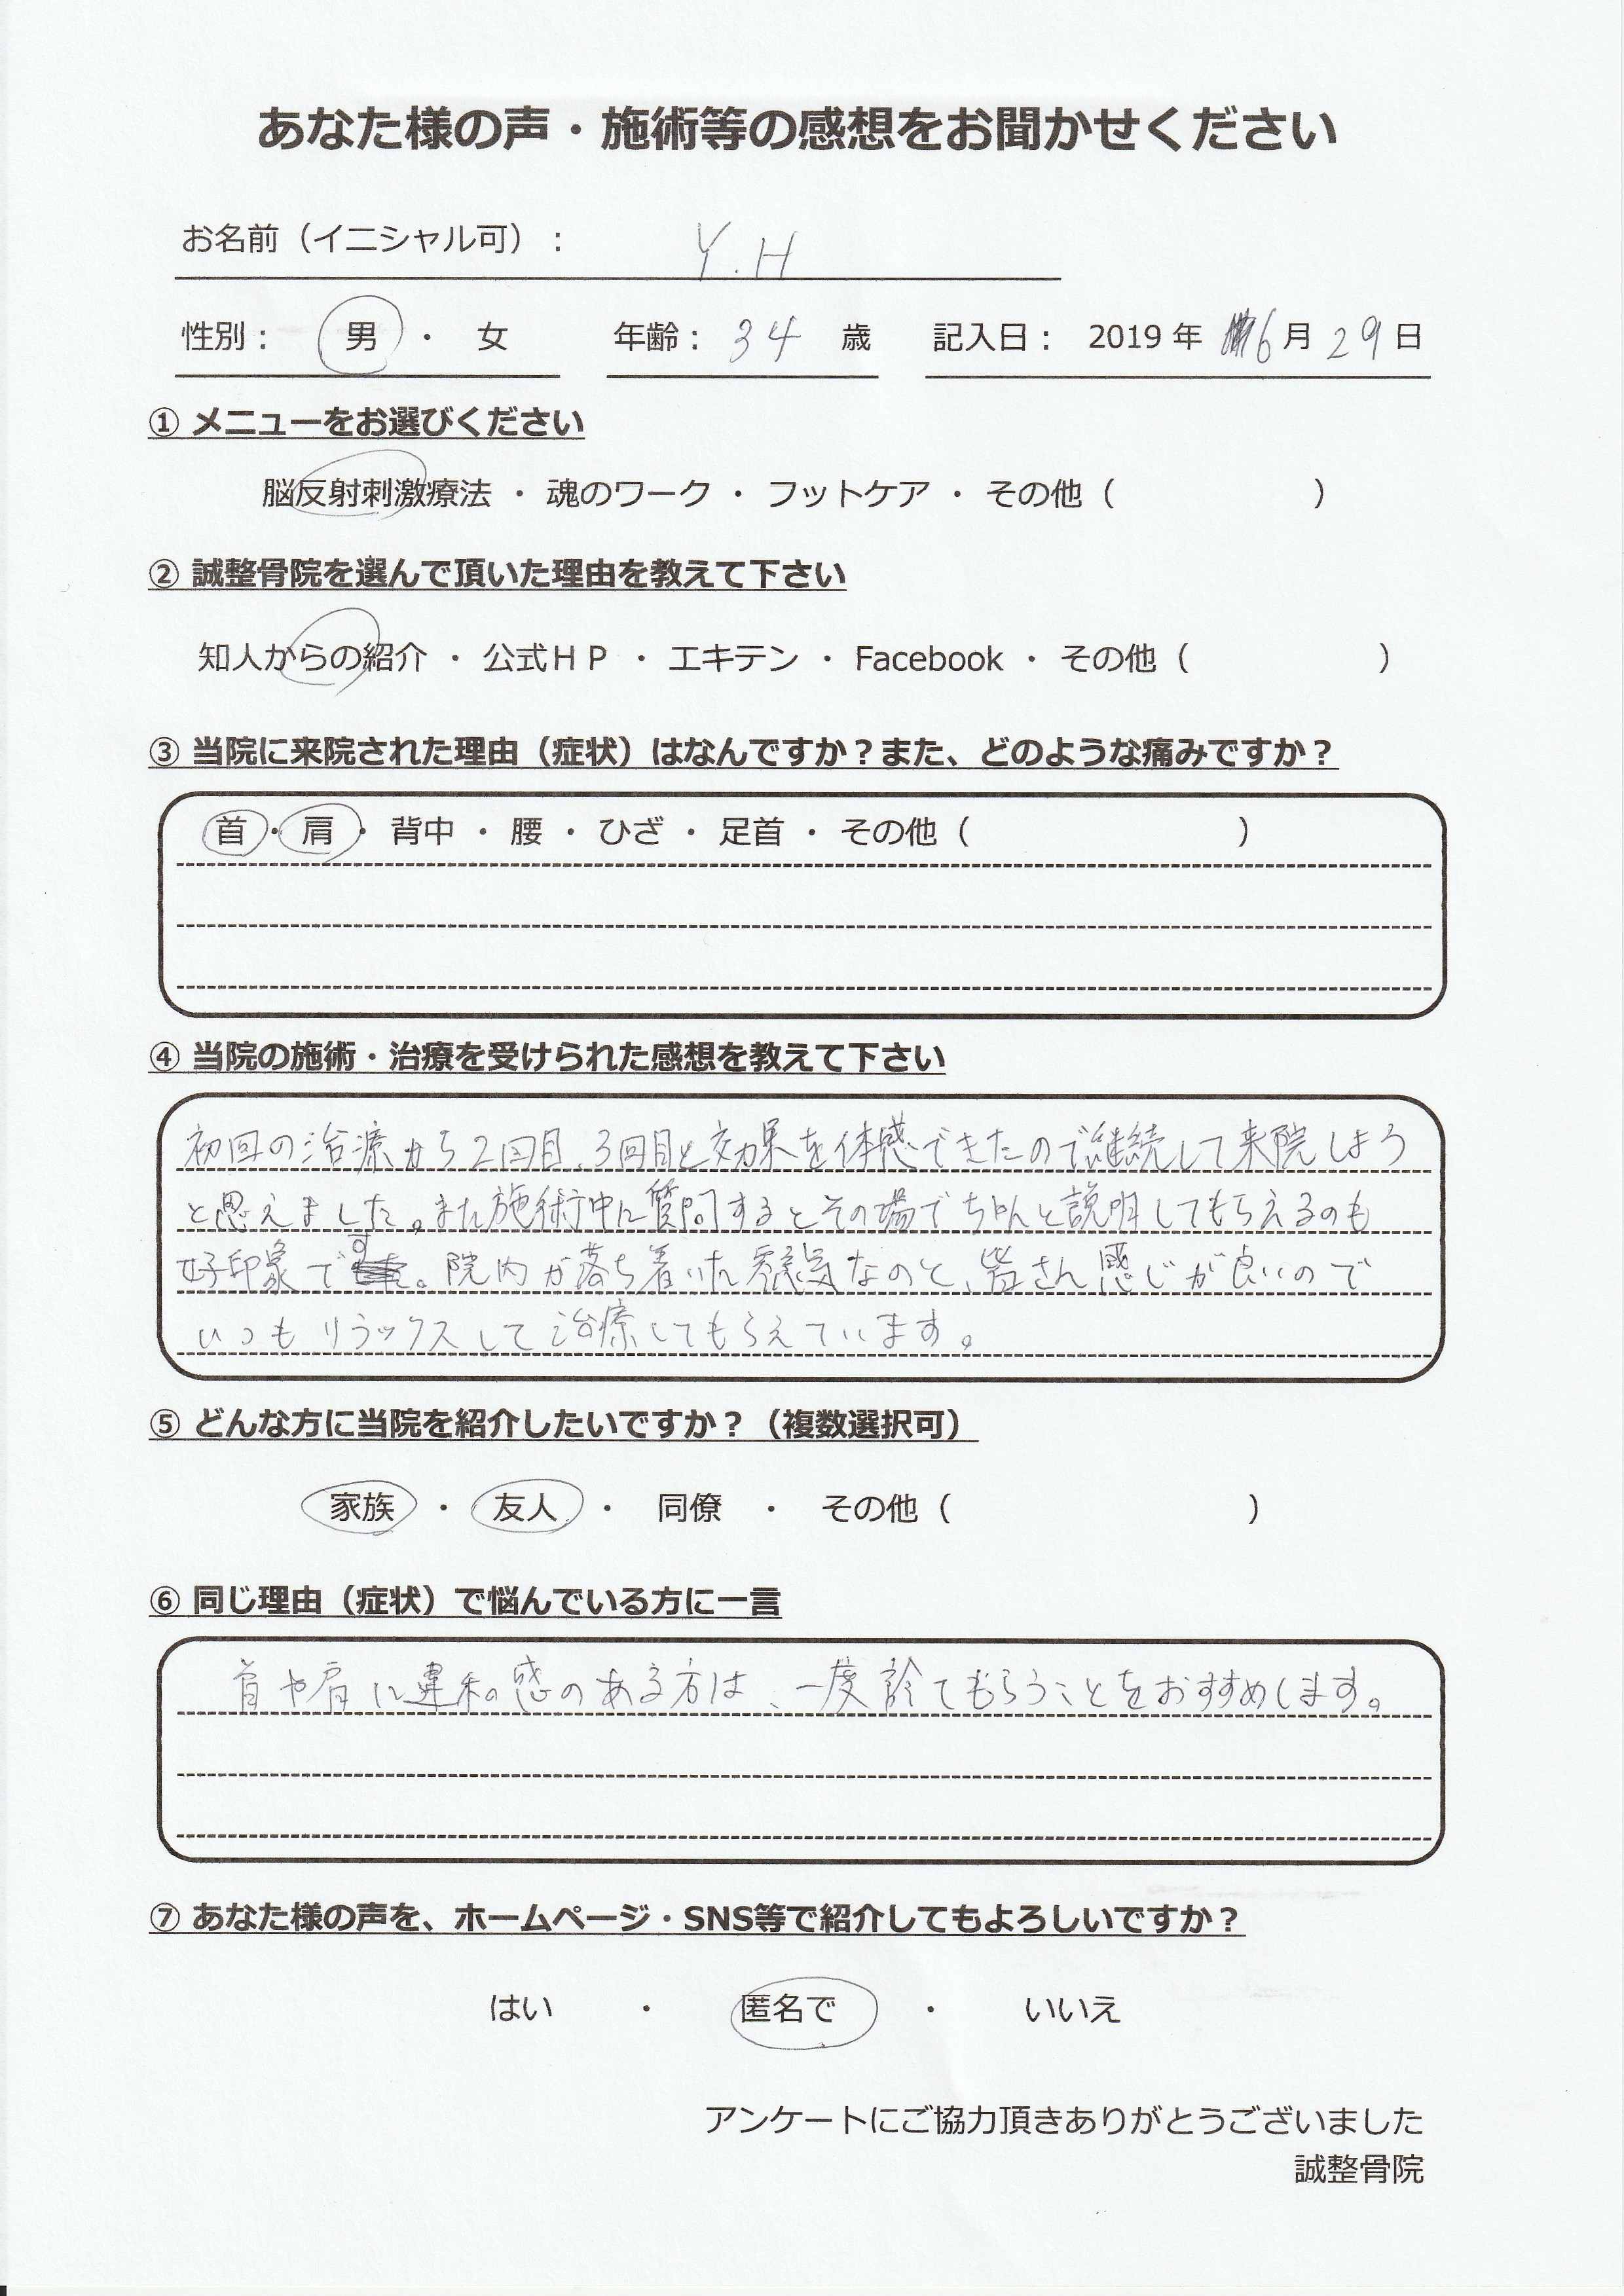 あなた様の声・施術等の感想をお聞かせください
お名前（イニシャル可）： Y.H
性別： 男 ・ 女 年齢： 34 歳 記入日： 2019 年 6 月 29 日
① メニューをお選びください
脳反射刺激療法 ・ 魂のワーク ・ フットケア ・ その他（ ）
② 誠整骨院を選んで頂いた理由を教えて下さい
知人からの紹介 ・ 公式ＨＰ ・ エキテン ・ Facebook ・ その他（ ）
③ 当院に来院された理由（症状）はなんですか？また、どのような痛みですか？
首 ・ 肩 ・ 背中 ・ 腰 ・ ひざ ・ 足首 ・ その他（ ）
④ 当院の施術・治療を受けられた感想を教えて下さい
初回の治療から2回目、3回目と効果を体感できたので継続して来院しよう
と思えました。また施術中に質問するとその場でちゃんと説明してもらえるのも
好印象です。院内が落ち着いた雰囲気なのと、皆さん感じが良いので
いつもリラックスして治療してもらえています。
⑤ どんな方に当院を紹介したいですか？（複数選択可）
家族 ・ 友人 ・ 同僚 ・ その他（ ）
⑥ 同じ理由（症状）で悩んでいる方に一言
首や肩に違和感のある方は、一度診てもらうことをおすすめします。
⑦ あなた様の声を、ホームページ・SNS等で紹介してもよろしいですか？
はい ・ 匿名で ・ いいえ
アンケートにご協力頂きありがとうございました
誠整骨院